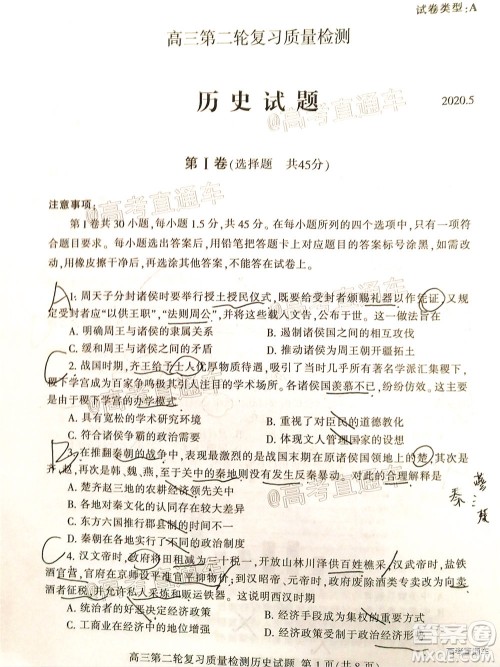 试卷类型:A
高三第二轮复习质量检测
历史试题
2020.5
第Ⅰ卷(选择题 共45分)
注意事项:
第Ⅰ卷共30小题,每小题1.5分,共45分。在每小题所列的四个选项中,只有一项符合题目要求。每小题选出答案后,用铅笔把答题卡上对应题目的答案标号涂黑。如需改动,用橡皮擦干净后,再选涂其他答案,不能答在试卷上。
A
1.周天子分封诸侯时要举行授土授民仪式,既要给予受封者颁赐礼器以作凭证,又规定受封者应“以德为王”、“法则周公”,并将这些载入文告,公布于世。这一做法旨在
A.明确周王与诸侯的隶属关系 B.遏制诸侯国之间的相互攻伐
C.缓和周王与诸侯之间的矛盾 D.推动诸侯国的经济文化发展
C
2.战国时期,齐王给予士人优厚物质待遇,吸引了当时几乎所有著名学派汇集稷下,稷下学宫成为百家争鸣极其引人注目的学术场所。各诸侯国羡慕不已,纷纷仿效。这主要由于稷下学宫的办学模式
A.具有宽松的学术研究环境 B.重视了对臣民的道德教化
C.符合诸侯争霸的政治需要 D.体现了文人管理国家的方式
B
3.在推翻秦朝的战争中,表现最活跃的是战国末期在原诸侯国领土上的楚,其次是齐、赵,再次是韩、魏、燕,至于关中的秦地则没有发生反秦暴动。对此的合理解释是
A.楚齐赵三地的农耕经济领先关中
B.各地对秦文化的认同存在较大差异
C.东方六国与秦国郡县制的矛盾
D.秦朝各地实行了不同的政治制度
秦
C
4.汉文帝时,政府将田租减为三十税一,开放山林川泽供百姓樵采,汉武帝时,盐铁酒官营,官府在京师设平准官平抑物价;到昭帝时期,盐铁虽仍官营,酒类政策改为向卖酒者征税,并允许私人采炼和贩运铁器。这说明西汉时期
A.统治者的好恶决定经济政策 B.经济手段成为集权的重要方式
C.工商业的发展影响经济政策 D.经济政策
高三第二轮复习质量检测历史试题 第1页(共8页)
@高考直通车